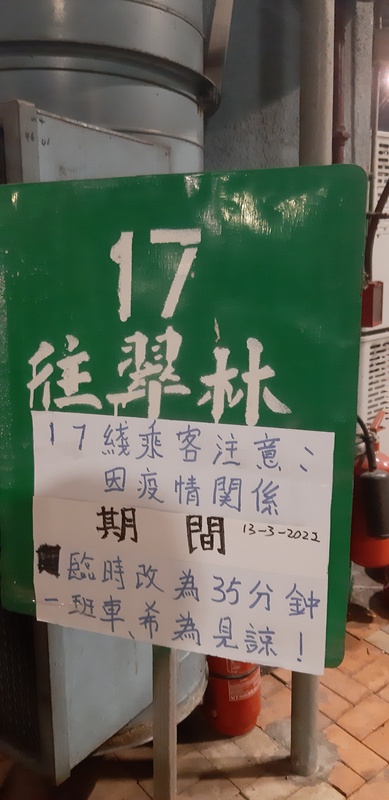 17
往翠林
17綫乘客注意：
因疫情關係
期間 13-3-2022
臨時改為35分鐘
一班車、希為見諒！